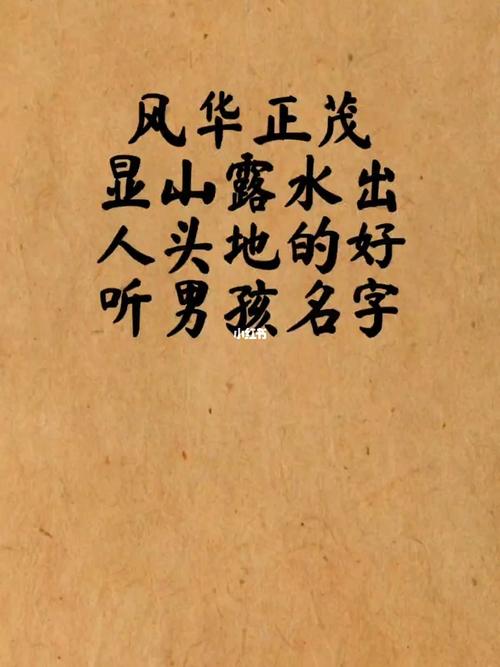 风华正茂
显山露水出
人头地的好
听男孩名字
小红书